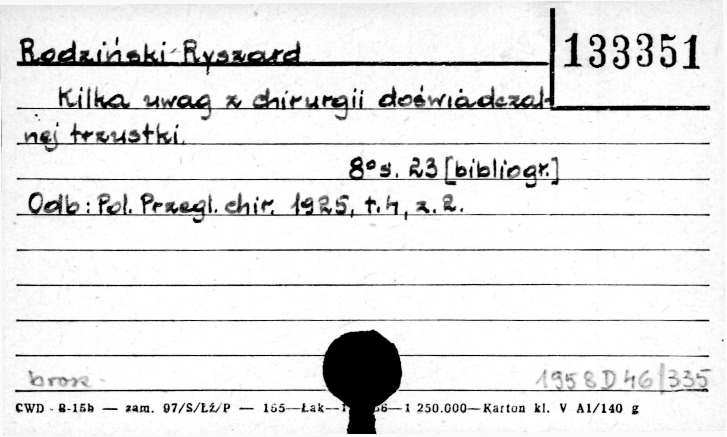 Rodziński Ryszard
133351
Kilka uwag z chirurgii doświadczal-
nej trzustki.
8° s. 23 [bibliogr.]
Odb: Pol. Przegl. chir. 1925, t.4, z.2.
brosz.
1958 D 46/335
CWD - B-15b — zam. 97/S/Łż/P — 155—Łak— 56—1 250.000—Karton kl. V A1/140 g